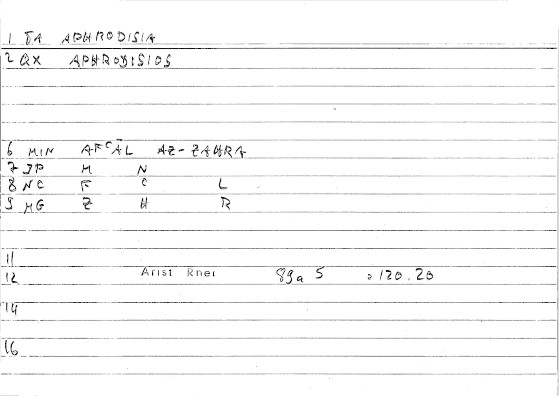 1 EA APHRODISIA
2 QX APHRODISIOS
6 MIN AFʿĀL AZ-ZAHRA
7 JP M N
8 NC F C L
9 MG Z H R
11
12 Arist Rhet 89a 5 = 120.20
14
16